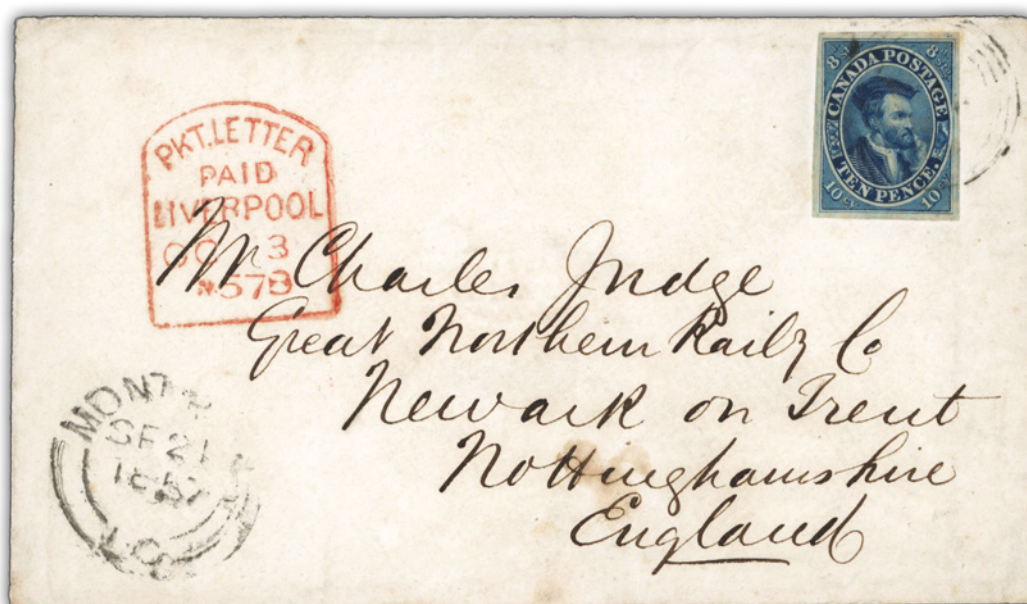 8 STG
8 STG
CANADA POSTAGE
TEN PENCE.
10 CY
10 CY
PKT. LETTER
PAID
LIVERPOOL
OC 3
57
Mr Charles Judge
Great Northern Raily Co
Newark on Trent
Nottinghamshire
England
SE 21
1857
L.C.